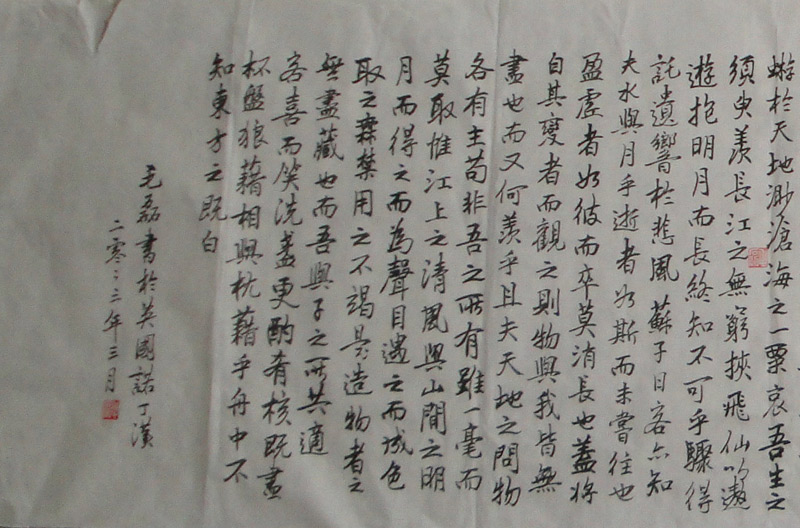 蜉於天地渺滄海之一粟哀吾生之
須臾羨長江之無窮挾飛仙以遨
遊抱明月而長終知不可乎驟得
託遺響於悲風蘇子曰客亦知
夫水與月乎逝者如斯而未嘗往也
盈虛者如彼而卒莫消長也蓋將
自其變者而觀之則物與我皆無
盡也而又何羨乎且夫天地之間物
各有主苟非吾之所有雖一毫而
莫取惟江上之清風與山間之明
月而得之而為聲目遇之而成色
取之無禁用之不竭是造物者之
無盡藏也而吾與子之所共適
客喜而笑洗盞更酌肴核既盡
杯盤狼藉相與枕藉乎舟中不
知東方之既白
毛磊書於英國諾丁漢
二零零三年三月